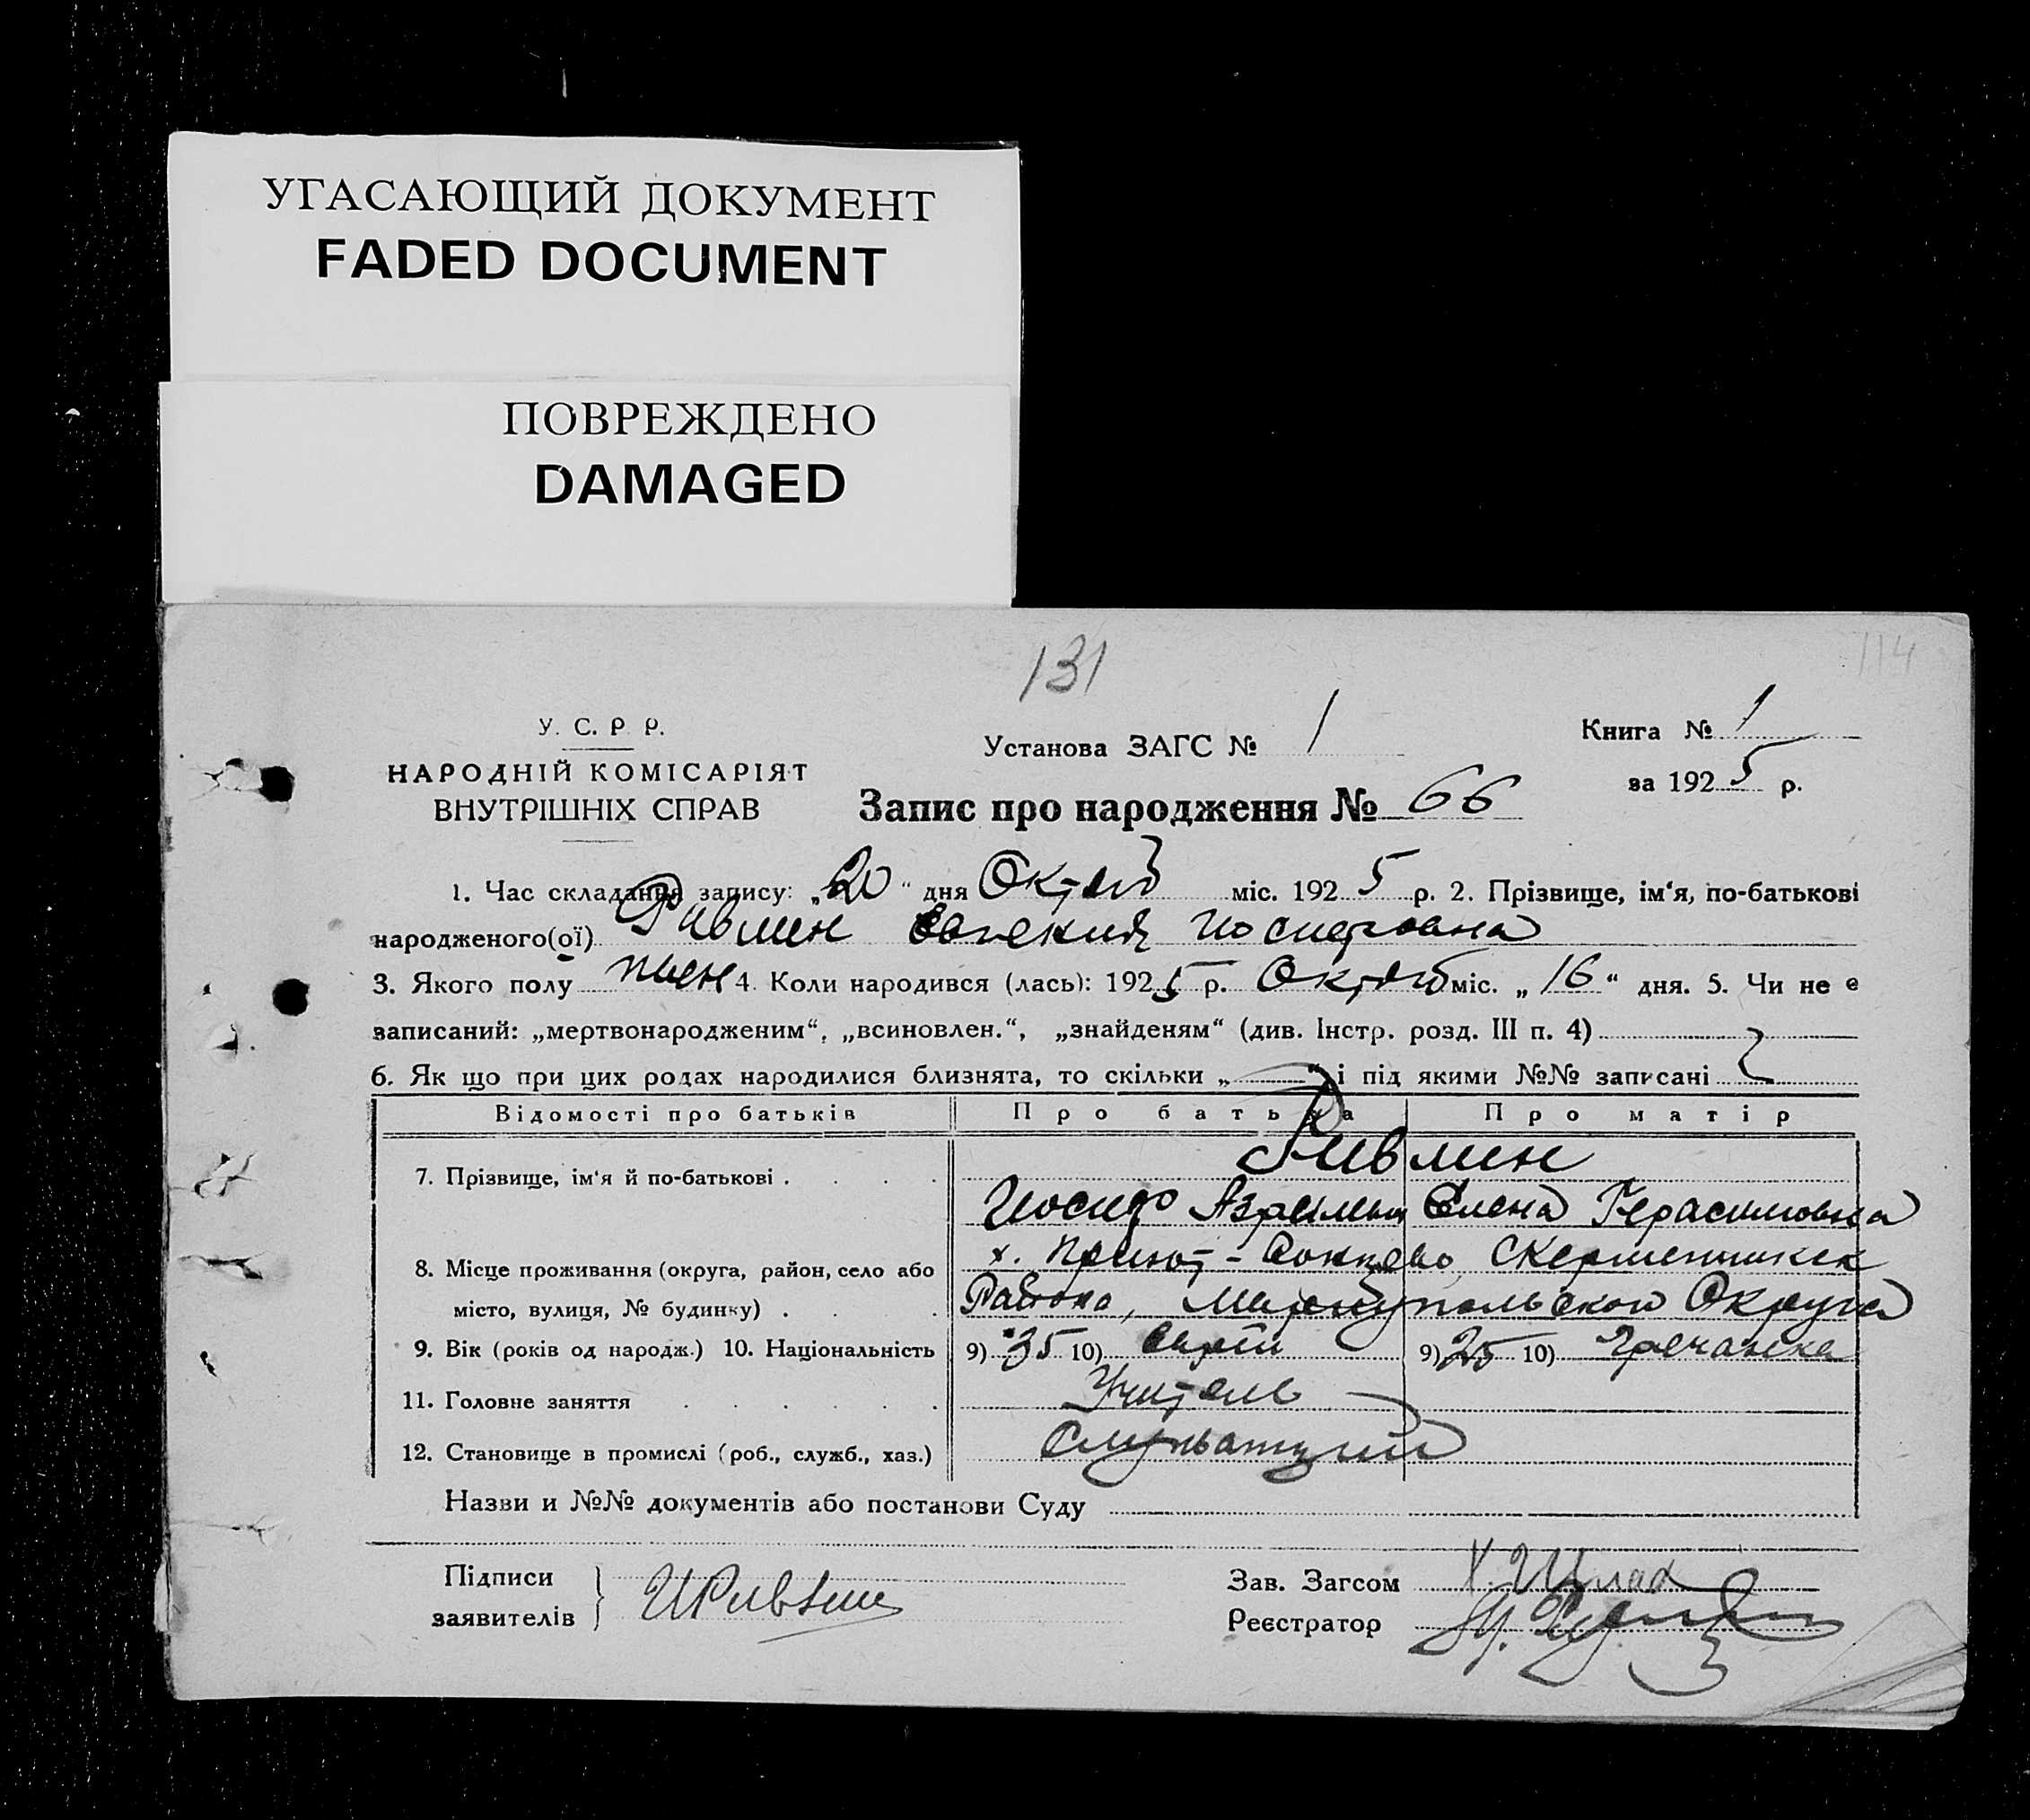 УГАСАЮЩИЙ ДОКУМЕНТ
FADED DOCUMENT
ПОВРЕЖДЕНО
DAMAGED
131
114
У. С. Р. Р.
НАРОДНІЙ КОМІСАРІЯТ
ВНУТРІШНІХ СПРАВ
Установа ЗАГС № 1
Книга № 1
за 1925 р.
Запис про народження № 66
1. Час складання запису: „20“ дня Октяб міс. 1925 р. 2. Прізвище, ім‘я, по-батькові
народженого(ої) Ривлин Иосифовна
3. Якого полу жен 4. Коли народився (лась): 1925 р. Октяб міс. „16“ дня. 5. Чи не є
записаний: „мертвонародженим“, „всиновлен.“, „знайденям“ (див. Інстр. розд. III п. 4)
6. Як що при цих родах народилися близнята, то скільки „ “ і під якими №№ записані
Відомості про батьків Про батька Про матір
7. Прізвище, ім‘я й по-батькові Ривлин
Иосиф Елена Герасимовна
8. Місце проживання (округа, район, село або х. Приют-
місто, вулиця, № будинку) Района, Мариупольской Округа
9. Вік (років од народж.) 10. Національність 9) 35 10) Еврей 9) 25 10) Гречанка
11. Головне заняття Учитель
12. Становище в промислі (роб., служб., хаз.) Служащий
Назви и №№ документів або постанови Суду
Підписи
заявителів } ИРивлин
Зав. Загсом
Реєстратор